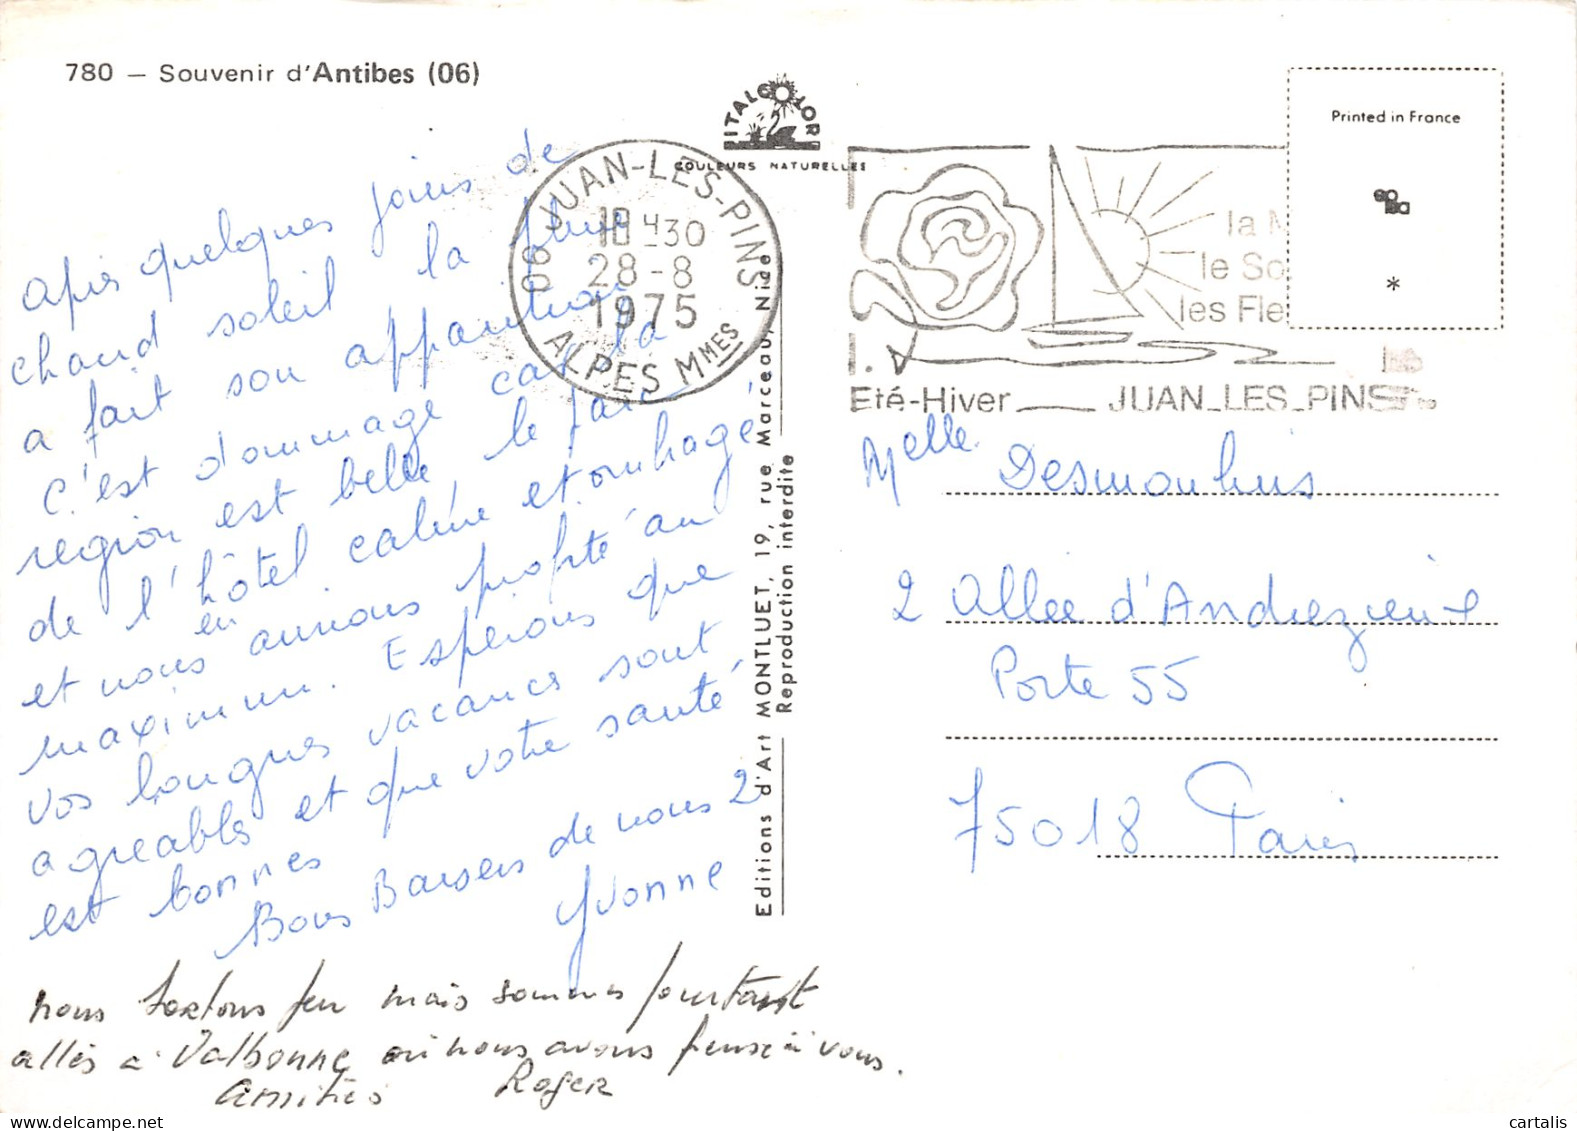 780 — Souvenir d'Antibes (06)
ITALCOLOR
COULEURS NATURELLES
Printed in France
*
06 JUAN-LES-PINS
18 H 30
28-8
1975
ALPES MMES
la M
le So
les Fle
Eté-Hiver JUAN_LES_PINS
Après quelques jours de
chaud soleil la pluie
a fait son apparition
c'est dommage car la
region est belle, le parc
de l'hôtel calme et ombragé
et nous en aurions profité au
maximum. Espérons que
vos longues vacances sont
agreables et que votre santé
est bonnes
Bons Baisers de nous 2
Yvonne
nous sortons peu mais sommes pourtant
allés a Valbonne où nous avons pensé à vous.
Amitiés Roger
Editions d'Art MONTLUET, 19, rue Marceau, Nice
Reproduction interdite
Melle Desmoulins
2 Allee d'Andrezieux
Porte 55
75018 Paris
cartalis